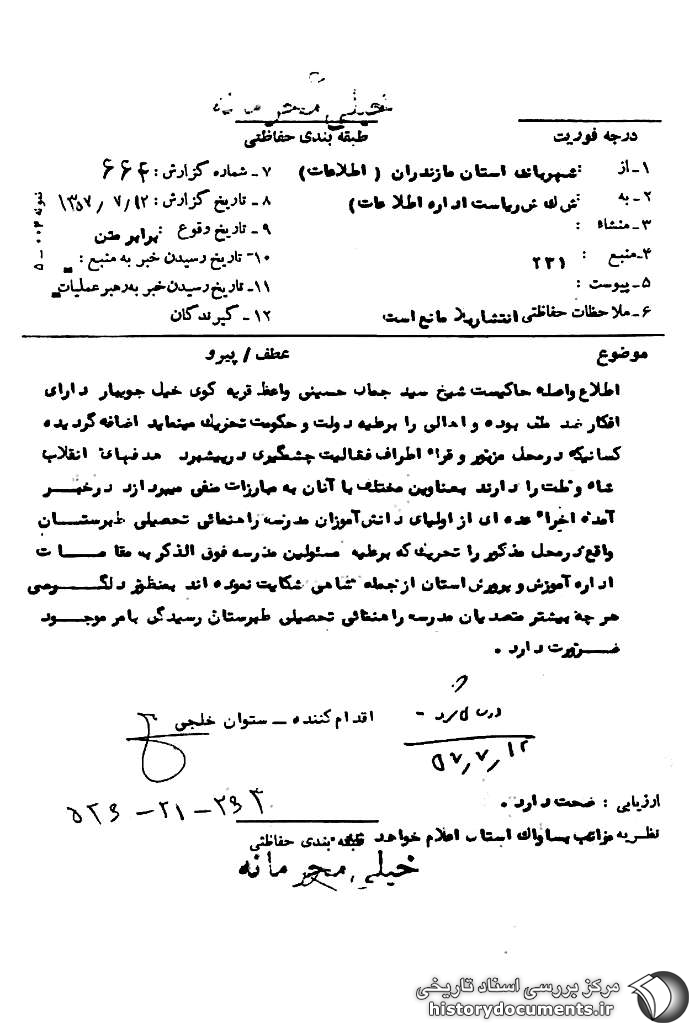 خیلی محرمانه
درجه فوریت
طبقه بندی حفاظتی
۱ـ از : شهربانی استان مازندران (اطلاعات)
۷ـ شماره گزارش : ۶۶۴
۲ـ به : ش ک ش ریاست اداره اطلاعات)
۸ـ تاریخ گزارش : ۱۳۵۷/۷/۱۲
۳ـ منشاء :
۹ـ تاریخ وقوع : برابر متن
۴ـ منبع : ۲۳۱
۱۰ـ تاریخ رسیدن خبر به منبع : ـ
۵ـ پیوست :
۱۱ـ تاریخ رسیدن خبر به رهبر عملیات ـ
۶ـ ملاحظات حفاظتی انتشار بلا مانع است
۱۲ـ گیرندگان
نمونه ۰۰۴ ـ ۵
موضوع
عطف / پیرو
اطلاع واصله حاکیست شیخ سید جمال حسینی واعظ قریه کوی خیل جویبار دارای
افکار ضد ملی بوده و اهالی را برعلیه دولت و حکومت تحریک مینماید اضافه گردیده
کسانیکه در محل مزبور و قراء اطراف فعالیت چشمگیری در پیشبرد هدفهای انقلاب
شاه و ملت را دارند بعناوین مختلف با آنان به مبارزات منفی میپردازد در خبر
آمده اخیراً عده ای از اولیای دانش آموزان مدرسه راهنمائی تحصیلی طبرستان
واقع در محل مذکور را تحریک که برعلیه مسئولین مدرسه فوق الذکر به مقامات
اداره آموزش و پرورش استان از جمله شاهی شکایت نموده اند بمنظور دلگرمی
هر چه بیشتر متصدیان مدرسه راهنمائی تحصیلی طبرستان رسیدگی بامر موجود
ضرورت دارد .
اقدام کننده ـ ستوان خلجی
۵۷/۷/۱۲
ارزیابی : صحت دارد .
نظریه مراتب بساواک استان اعلام خواهد شد
طبقه بندی حفاظتی
خیلی محرمانه
مرکز بررسی اسناد تاریخی
historydocuments.ir